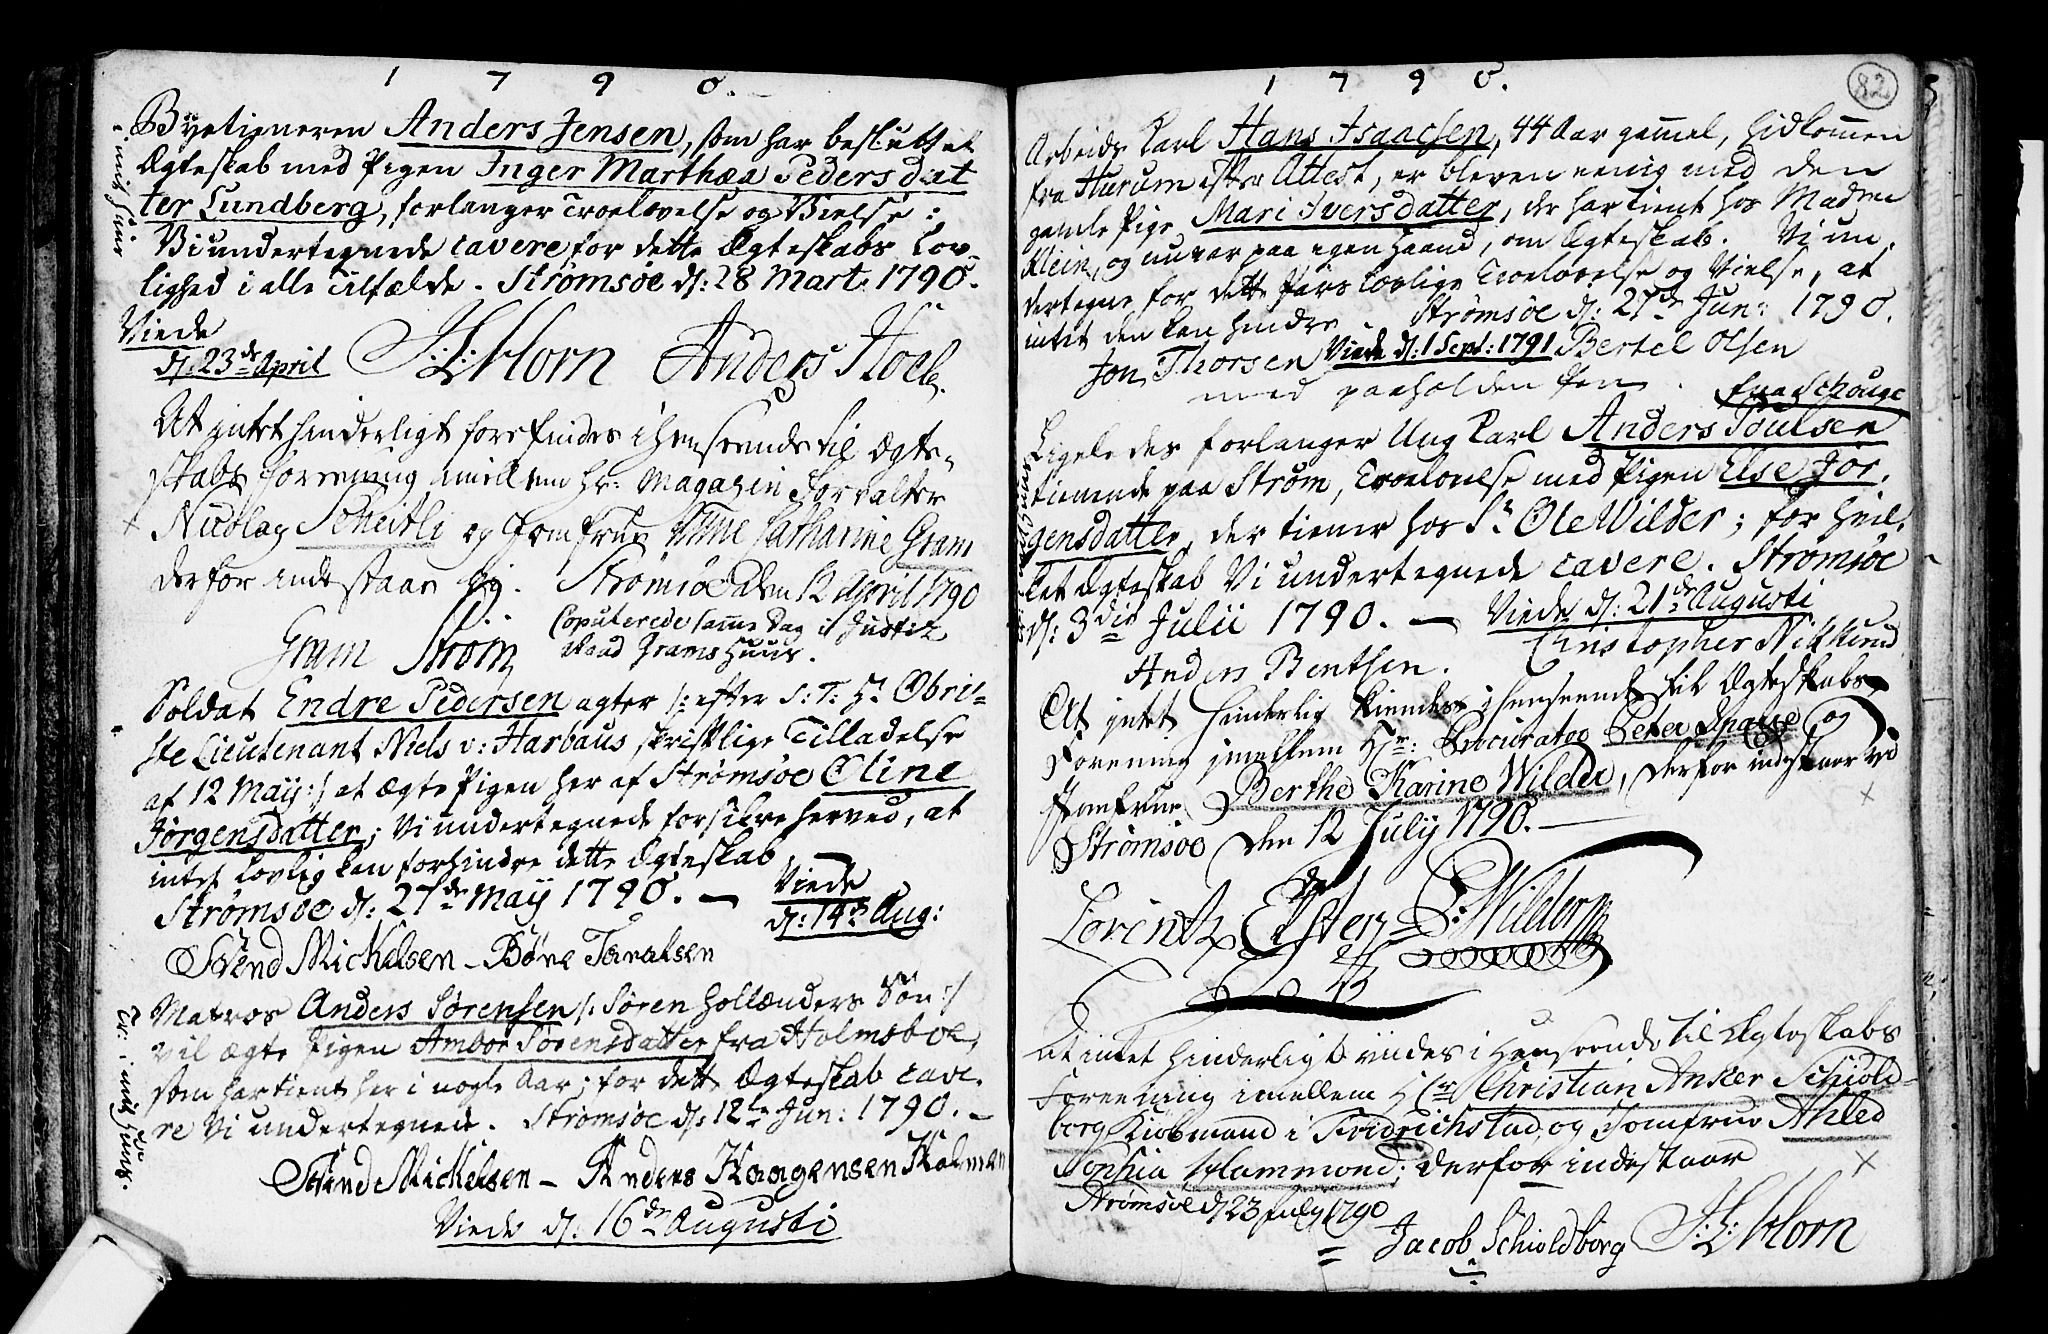 1790.
Byetieneren Anders Jensen, som har besluttet
Ægteskab med Pigen Inger Marthæa Pedersdat
ter Lundberg, forlanger Troelovelse og Vielse:
Vi undertegnede cavere for dette Ægteskabs Lov-
lighed i alle Tilfælde. Strømsøe d: 28 Mart: 1790.
i mit Huus
Viede
d: 23de April
J: L: Horn Anders Hoel
At intet hinderligt forefindes i Henseende til Ægte-
skabs Foreening imellem Hr: Magazin Forvalter
Nicolay Scheitli og Jomfrue Anne Catharine Gram
derfor indestaar vj. Strømsøe den 12 April 1790
Gram Strøm
Copulerede samme Dag i Justiz
Raad Grams Huus.
Soldat Endre Pedersen agter /: efter S: T: Hr Obrist-
ste Lieutenant Niels v: Harbaus skriftlige Tilladelse
af 12 May :/ at ægte Pigen her af Strømsøe Oline
Jørgensdatter; Vi undertegnede forsikre herved, at
intet lovlig kan forhindre dette Ægteskab
Strømsøe d: 27de May 1790. —
Viede
d: 14de Aug:
Svend Michelsen - Børe Taralsen
Matros Anders Sørensen /: Søren Hollænders Søn :/
vil ægte Pigen Ambor Sørensdatter fra Holmsboe,
som har tient her i nogle Aar; for dette Ægteskab cave-
re Vi undertegnede. Strømsøe d: 12te Jun: 1790. -
Tr: i mit Huus.
Svend Michelsen - Anders Haagensen Holmen
Viede d: 16de Augusti
1790.
82
Arbeids Karl Hans Isaacsen, 44 Aar gammel, hidkommen
fra Hurum efter Attest, er bleven eenig med den
gamle Pige Mari Iversdatter, der har tient hos Madme
Klein, og nu var paa egen Haand, om Ægteskab. Vi un-
dertegne for dette Pars lovlige Troelovelse og Vielse, at
intet den kan hindre. Strømsøe d: 27de Jun: 1790.
Jon Thorsen Viede d: 1 Sept: 1791 Bertel Olsen
med paaholden Pen. fra Schouge
Ligeledes forlanger Ung Karl Anders Poulsen
tienende paa Strøm, Troelovelse med Pigen Else Jør-
gensdatter, der tiener hos Sr Ole Wilder; for hvil-
ket Ægteskab Vi undertegnede cavere. Strømsøe
d: 3die Julii 1790. — Viede d: 21de Augusti
Anders Bentsen. Christopher
At jntet hinderlig kiendes i Henseende til Ægteskabs
Forening jmellem Hr: Procurator Peter og
Jomfrue Berthe Karine Wilder, derfor indestaar vi
Strømsøe den 12 July 1790. —
Lorentz O: Wilder
At intet hinderligt vides i Henseende til Ægteskabs
Foreening imellem Hr Christian Anker Schiold-
borg Kiøbmand i Fridrichstad, og Jomfrue Ahled
Sophia Hammond; derfor indestaar
Strømsøe d 23 July 1790
Jacob Schioldborg J: L: Horn